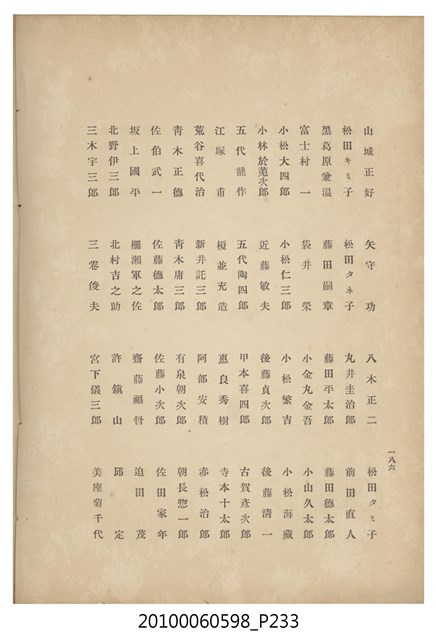 一八六
山城正好 矢守功 八木正二 松田タミ子
松田キミ子 松田タネ子 丸井圭治郎 前田直人
黑葛原兼温 藤田嗣章 藤田平太郎 藤田德太郎
富士村一 袋井榮 小金丸金吾 小山久太郎
小松大四郎 小松仁三郎 小松繁吉 小松海藏
小林於菟次郎 近藤敏夫 後藤貞次郎 後藤清一
五代龍作 五代陶四郎 甲本喜四郎 古賀彦次郎
江塚甫 榎並充造 惠良秀樹 寺本十太郎
荒谷喜代治 新井託三郎 阿部安積 赤松治郎
青木正德 青木庸三郎 有泉朝次郎 朝長惣一郎
佐伯武一 佐藤德太郎 佐藤小次郎 佐田家年
坂上國平 棚瀨軍之佐 迫田茂
北野伊三郎 北村吉之助 許鎮山 邱定
三木宇三郎 三卷俊夫 宮下儀三郎 美座菊千代
20100060598_P233